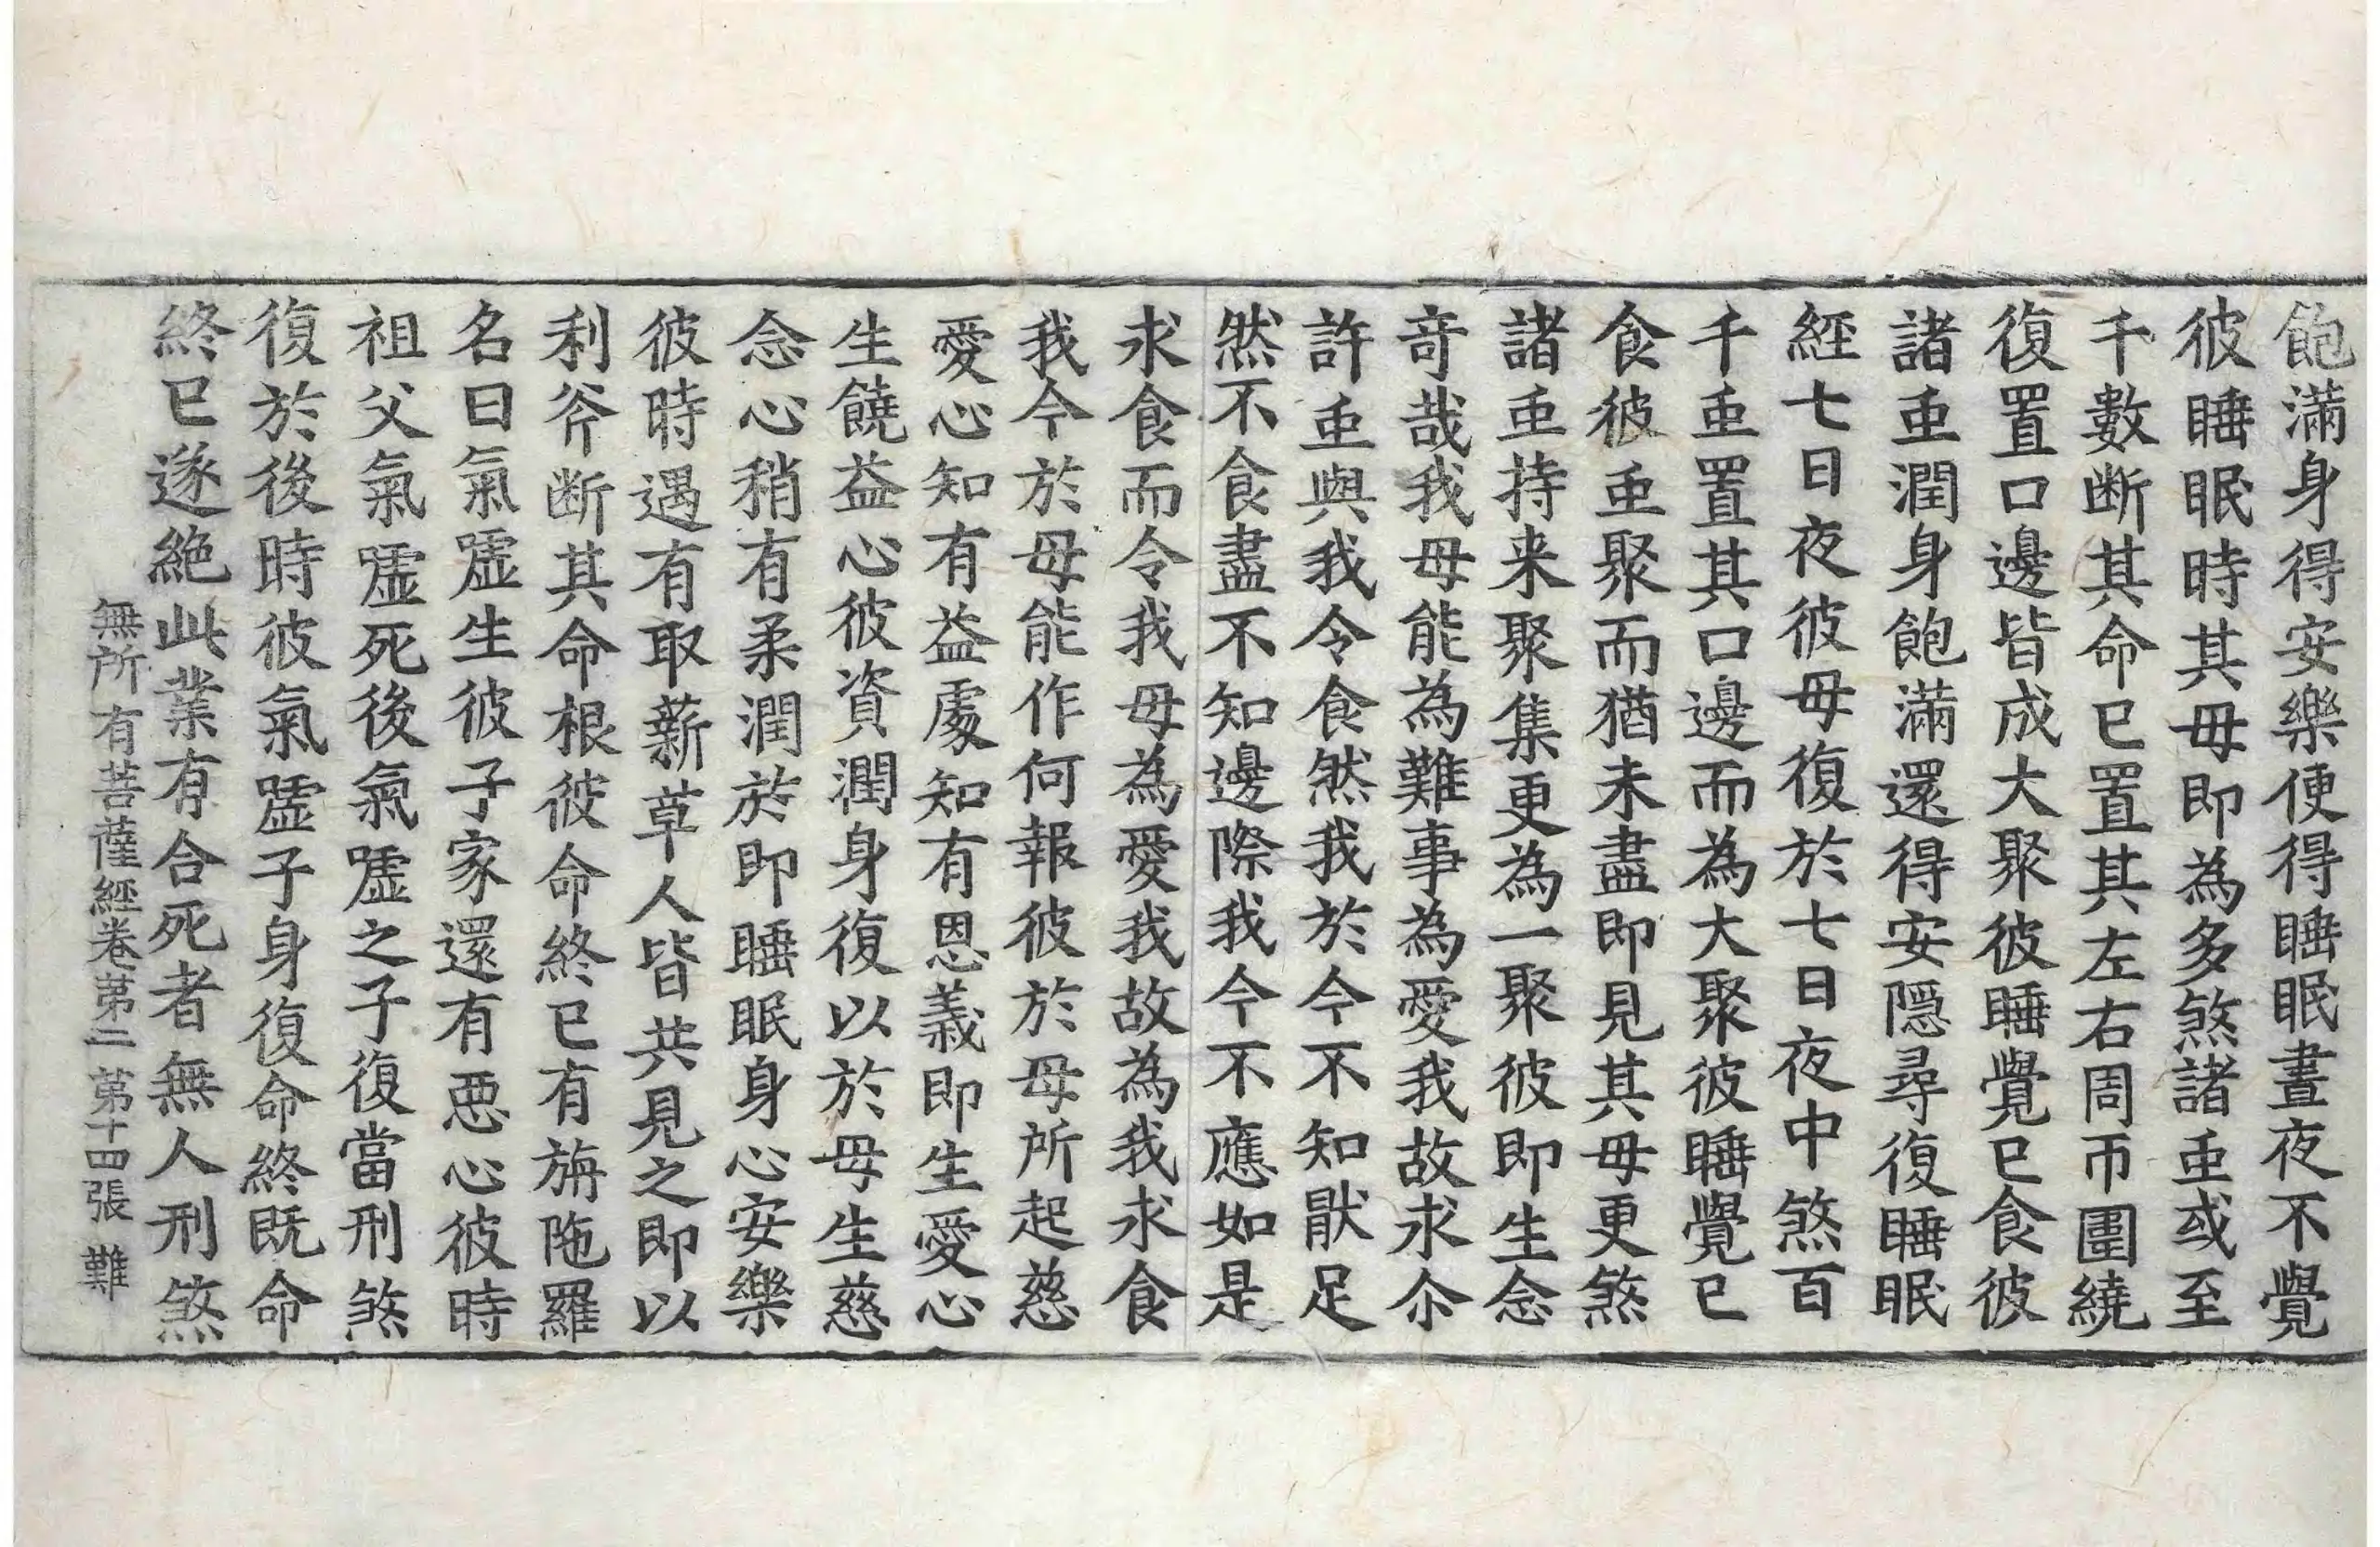 飽滿身得安樂便得睡眠晝夜不覺
彼睡眠時其母即為多煞諸䖝或至
千數断其命已置其左右周帀圍繞
復置口邊皆成大聚彼睡覺已食彼
諸䖝潤身飽滿還得安隱尋復睡眠
經七日夜彼母復於七日夜中煞百
千䖝置其口邊而為大聚彼睡覺已
食彼䖝聚而猶未盡即見其母更煞
諸䖝持来聚集更為一聚彼即生念
奇哉我母能為難事為愛我故求尒
許䖝與我令食然我於今不知猒足
然不食盡不知邊際我今不應如是
求食而令我母為愛我故為我求食
我今於母能作何報彼於母所起慈
愛心知有益處知有恩義即生愛心
生饒益心彼資潤身復以於母生慈
念心稍有柔潤於即睡眠身心安樂
彼時遇有取薪草人皆共見之即以
利斧断其命根彼命終已有旃陁羅
名曰氣嘘生彼子家還有惡心彼時
祖父氣嘘死後氣嘘之子復當刑煞
復於後時彼氣嘘子身復命終既命
終已遂絶此業有合死者無人刑煞
無所有菩薩經卷第三 第十四張 難